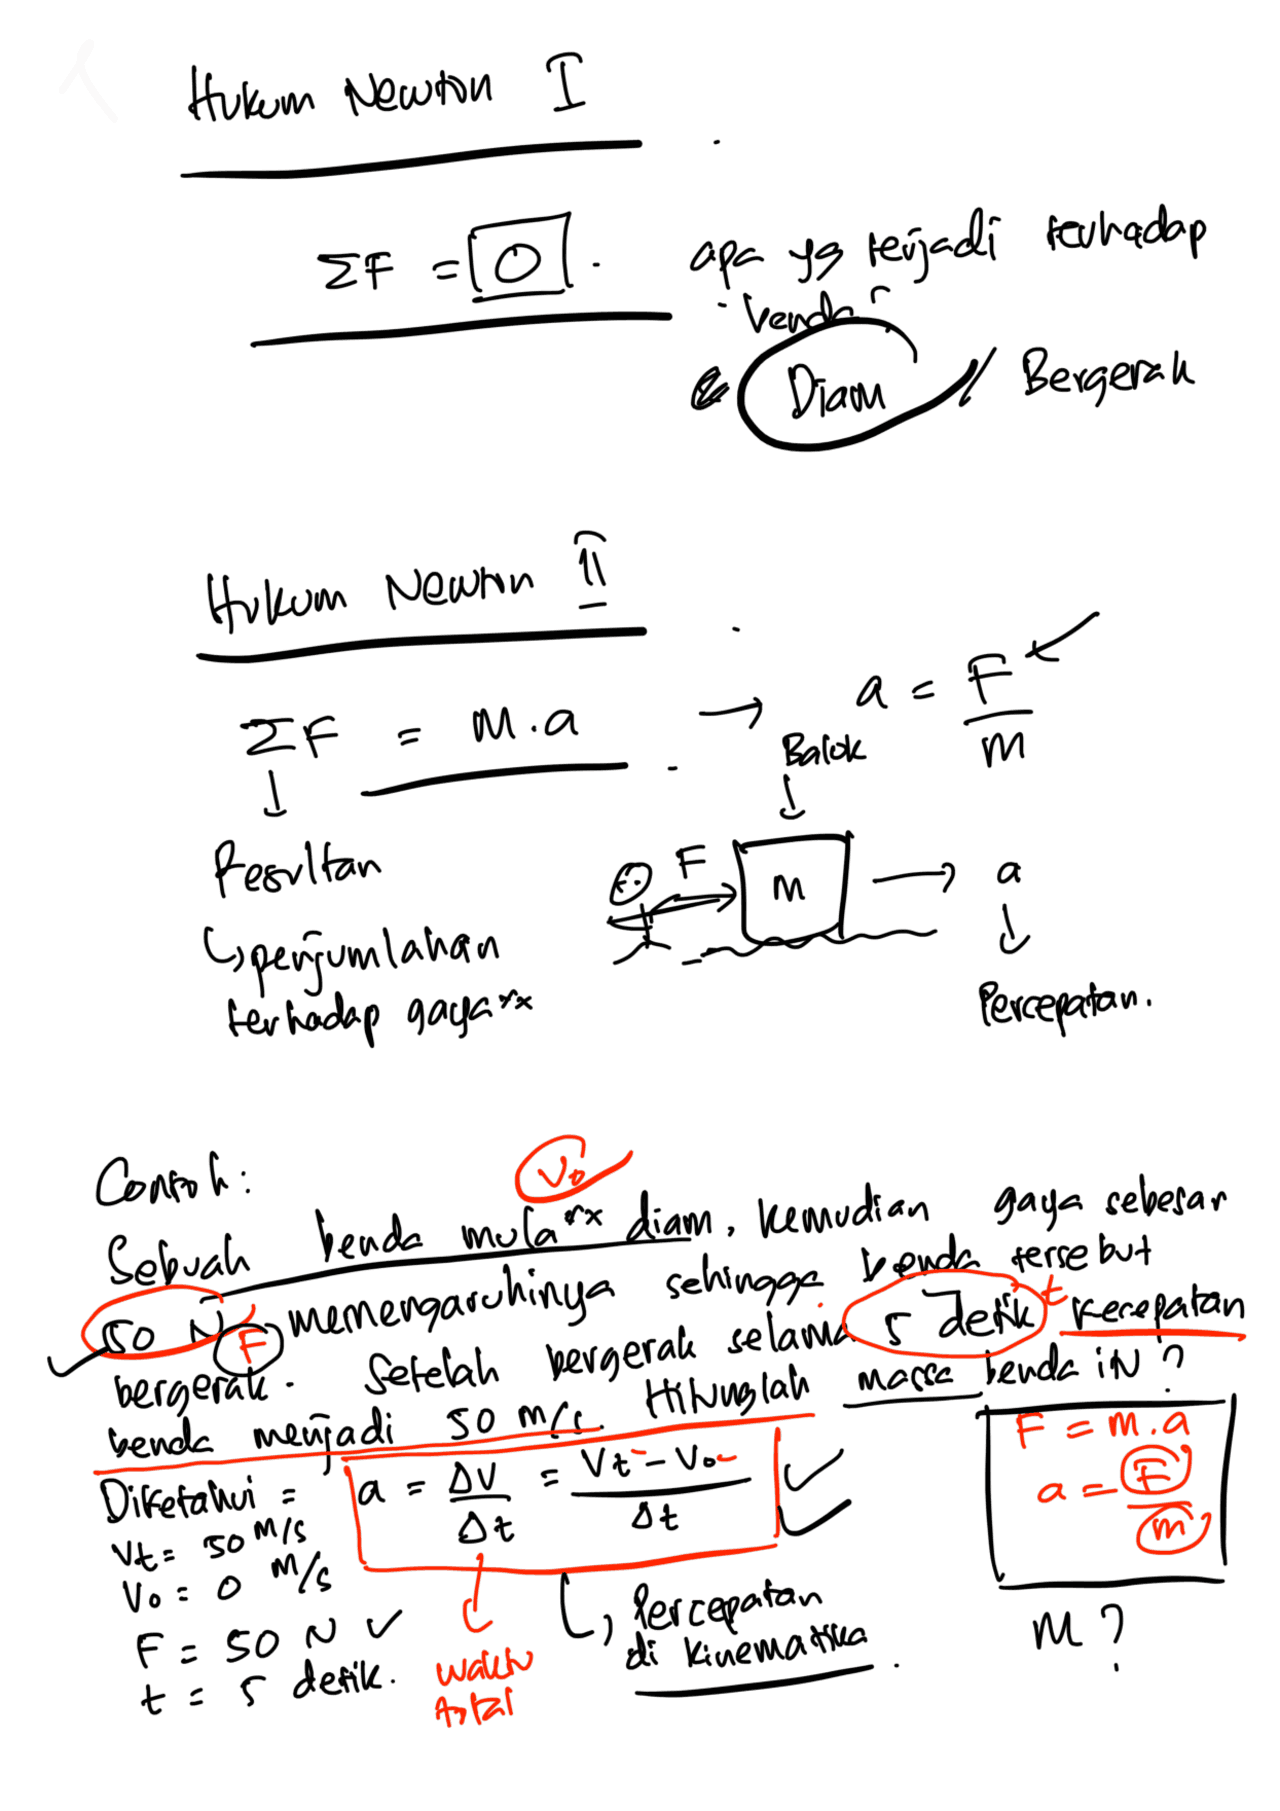 Hukum Newton I
ΣF = 0 .
apa yg terjadi terhadap
benda?
Diam / Bergerak
Hukum Newton II
ΣF = m.a → a = F/m
Resultan
↳ penjumlahan
terhadap gaya"
Balok
F
m
→ a
Percepatan.
Contoh:
V₀
Sebuah benda mula" diam, kemudian gaya sebesar
50 N F memengaruhinya sehingga benda tersebut
bergerak. Setelah bergerak selama 5 detik t kecepatan
benda menjadi 50 m/s. Hitunglah massa benda ini?
Diketahui =
Vt = 50 m/s
V₀ = 0 m/s
F = 50 N ✓
t = 5 detik.
a = ΔV/Δt = Vt - V₀/Δt
waktu
↳ Percepatan
di kinematika.
F = m.a
a = F/m
m?